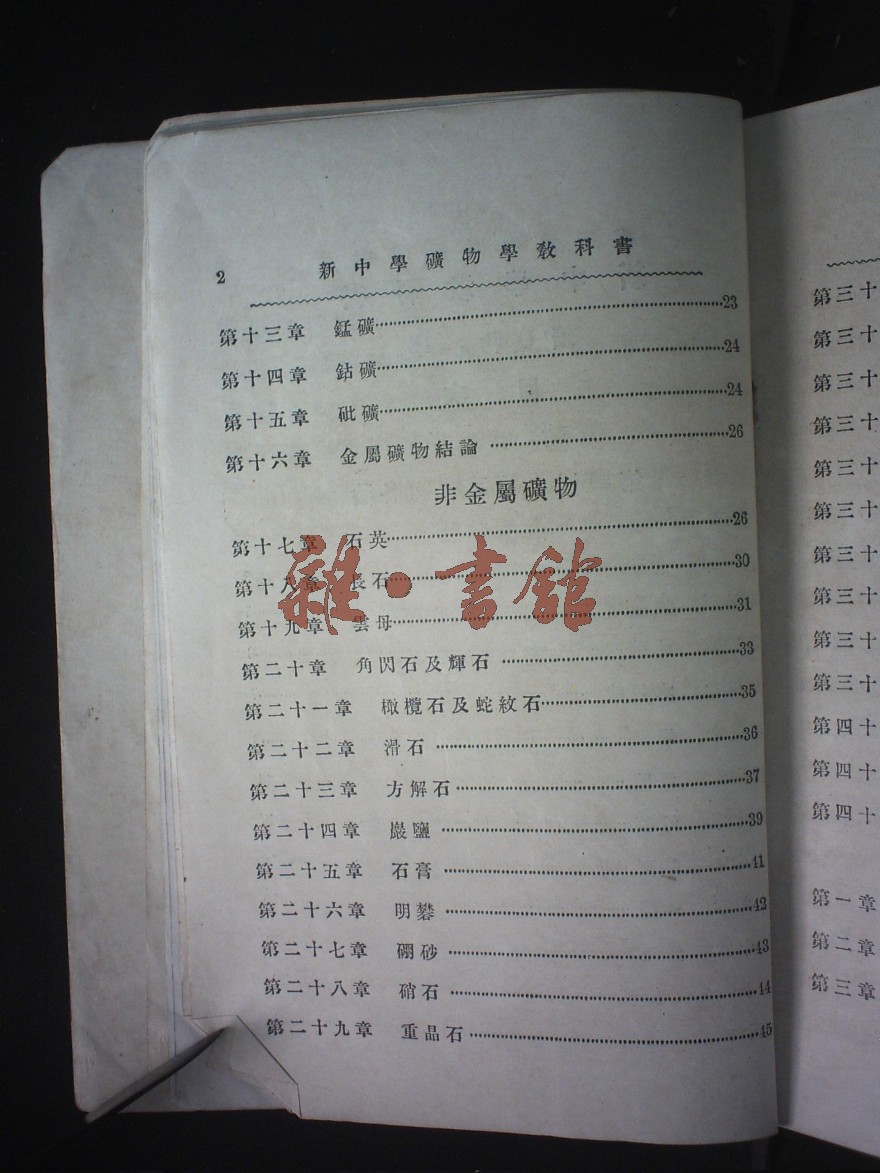 2 新中學礦物學教科書
第十三章 錳礦 23
第十四章 鈷礦 24
第十五章 砒礦 24
第十六章 金屬礦物結論 26
非金屬礦物
第十七章 石英 26
第十八章 長石 30
第十九章 雲母 31
第二十章 角閃石及輝石 33
第二十一章 橄欖石及蛇紋石 35
第二十二章 滑石 36
第二十三章 方解石 37
第二十四章 巖鹽 39
第二十五章 石膏 41
第二十六章 明礬 42
第二十七章 硼砂 43
第二十八章 硝石 44
第二十九章 重晶石 45
雜·書館
第三十
第三十
第三十
第三十
第三十
第三十
第三十
第三十
第三十
第三十
第四十
第四十
第四十
第一章
第二章
第三章